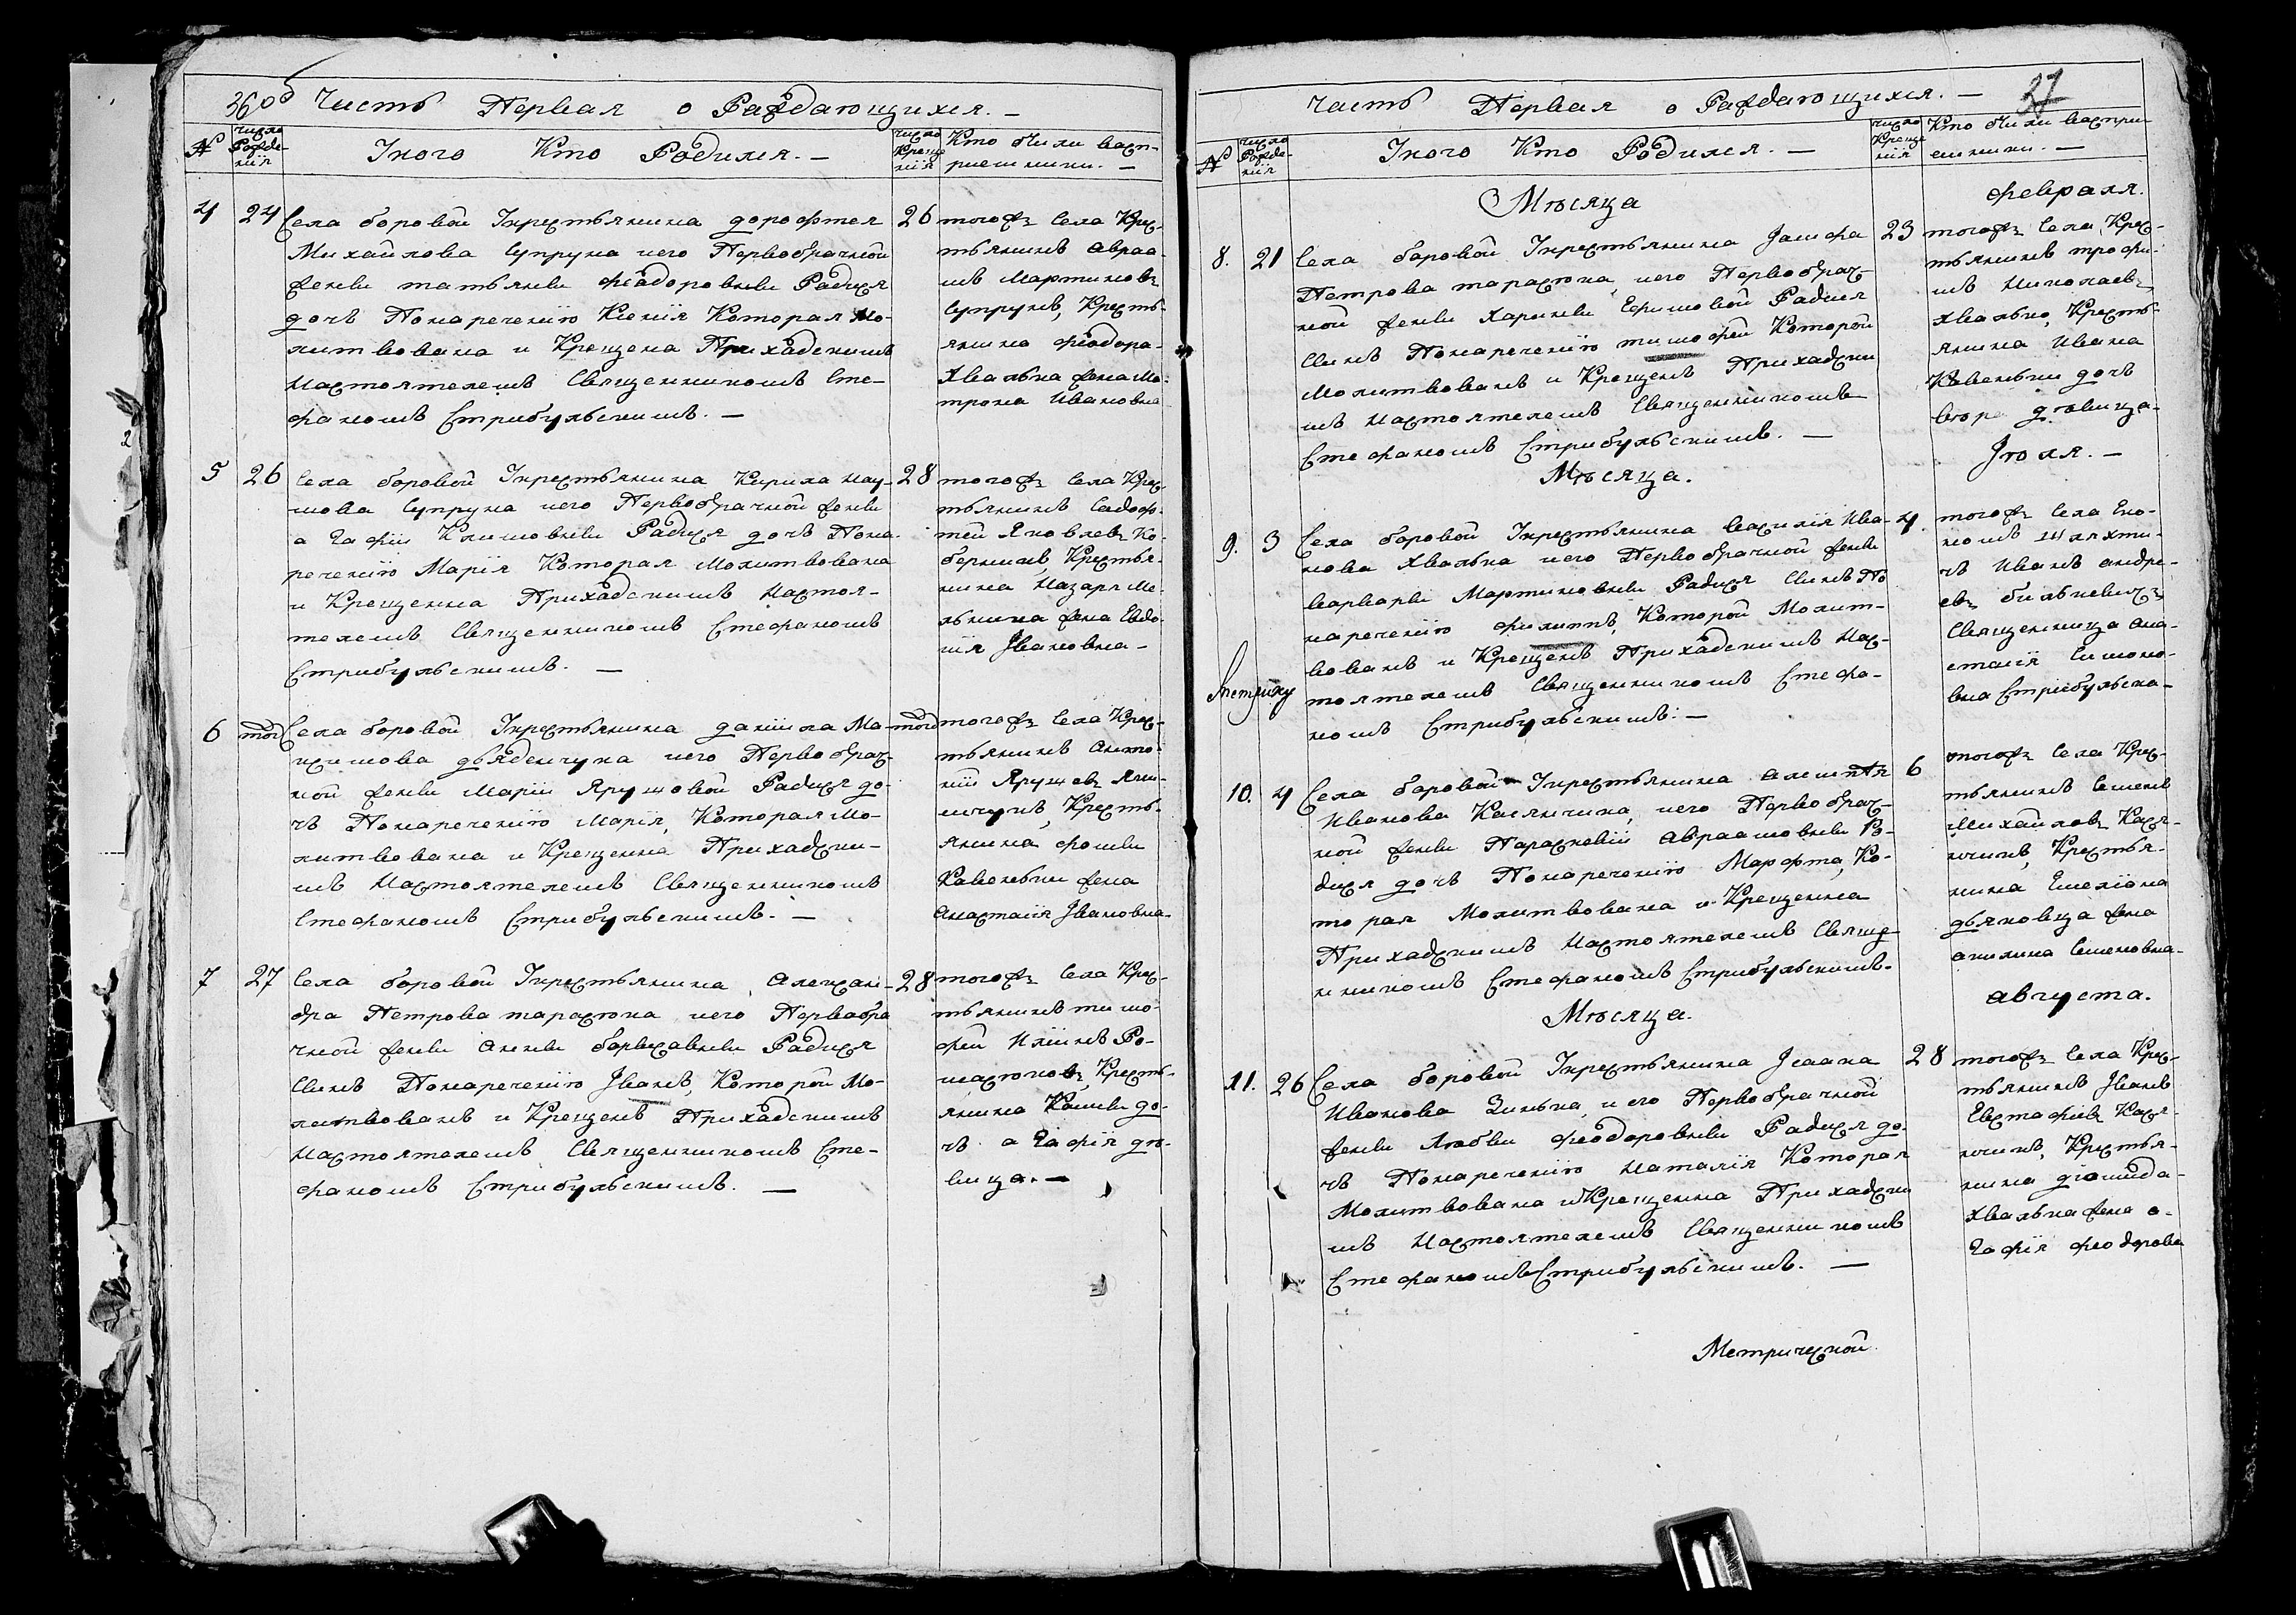 36об Часть Первая о Раждающихся. —
№
число Рожденія
Укого Кто Родился. —
число Крещенія
Кто были васприемники. —
4 24 Села боровой Укрестьянина дорофтея
Михайлова Супруна иего Первобрачной
жены татьяны феодоровны Радися
дочь Понаречению Ксенія Которая мо-
литвована и Крещена Прихадскимъ
Настоятелемъ Священникомъ Сте-
фаномъ Стрибульскимъ. —
26 тогожъ Села Крес-
тьянинъ Авраа-
мъ Мартиновъ
Супрунъ, Кресть-
янина феодора
Хвалька жена Ма-
трона Ивановна
5 26 Села боровой Укрестьянина Кирила Нау-
мова Супруна иего Первобрачной жены
агафіи Климовны Радися дочь Пона-
речению Марія Которая Молитвована
и Крещенна Прихадскимъ Настоя-
телемъ Священникомъ Стефаномъ
Стрибульскимъ. —
28 тогожъ Села Крес-
тьянинъ Садоф-
тей Яковлевъ Ко-
берникъ, Крестья-
нина Назаря Ме-
льника жена Евдо-
кія Јвановна —
6 тогд Села боровой Укрестьянина даніила Ма-
ксимова дьяденчука иего Первобрач-
ной жены Маріи Ярушовой Радися до-
чь Понаречению Марія, Которая мо-
литвована и Крещенна Прихадски-
мъ Настоятелемъ Священникомъ
Стефаномъ Стрибульскимъ. —
тогд тогожъ Села Крес-
тьянинъ Анто-
ній Ярушовъ Яки-
мчукъ, Кресть-
янина фомы
Равеньки жена
Анастасія Јвановна
7 27 Села боровой Укрестьянина Алексан-
дра Петрова тарасюка иего Первобра
чной жены Анны борисавны Радися
Синъ Понаречению Јванъ, Которой Мо-
литвованъ и Крещенъ Прихадскимъ
Настоятелемъ Священникомъ Сте-
фаномъ Стрибульскимъ. —
28 тогожъ Села Крес-
тьянинъ тимо-
фей Иліинъ Ро-
масюковъ, Кресть-
янина до-
чь агафія дѣ-
вица. —
часть Первая о Раждающихся. — 37
№
число Рожденія
Укого Кто Родился. —
число Крещенія
Кто были васпри-
емники. —
Мѣсяца февраля.
8. 21 Села боровой Укрестьянина Јосифа
Петрова тарасюка, иего Первобрач-
ной жены Харитины Ефимовой Радися
Синъ Понаречению тимофей Которой
Молитвованъ и Крещенъ Прихадски
мъ Настоятелемъ Священникомъ
Стефаномъ Стрибульскимъ. —
23 тогожъ Села Крес-
тьянинъ трофи-
мъ Николаевъ
Хвалько, Кресть-
янина Ивана
Равеньки дочь
дѣвица.
Мѣсяца. Јюля. —
9. 3 Села боровой Укрестьянина Василія Ива-
нова Хвалька иего Первобрачной жены
Варвары Мартиновны Радися Синъ По
наречению филиппъ, Которой Молит-
вованъ и Крещенъ Прихадскимъ Нас-
тоятелемъ Священникомъ Стефа-
номъ Стрибульскимъ. —
4. тогожъ Села Еко-
номъ шляхти-
чъ Иванъ андре-
евъ билькевичъ
Священница Ана-
стасія Симоно-
вна Стрибульска-
10. 4 Села боровой Укрестьянина Алимпія
Иванова Касянчика, иего Первобрач-
ной жены Параскевіи Авраамовны Ро-
дися дочь Понаречению Марфта, Ко-
торая Молитвована и Крещенна
Прихадскимъ Настоятелемъ Свяще-
нникомъ Стефаномъ Стрибульскимъ.
6 тогожъ Села Крес-
тьянинъ Семенъ
Михайловъ Кася-
нчикъ, Крестья-
нина Емеліана
дьяковца жена
акилина Семеновна
Мѣсяца. августа.
11. 26 Села боровой Укрестьянина Јсаака
Иванова Зинька, и его Первобрачной
жены Любви феодоровны Радися до-
чь Понаречению Наталія Которая
Молитвована и Крещенна Прихадски
мъ Настоятелемъ Священникомъ
Стефаномъ Стрибульскимъ. —
28 тогожъ Села Крес-
тьянинъ Јванъ
Евстафіевъ Кася-
нчикъ, Крестья-
нина діомида-
Хвалька жена а-
гафія феодоровн
Метрической